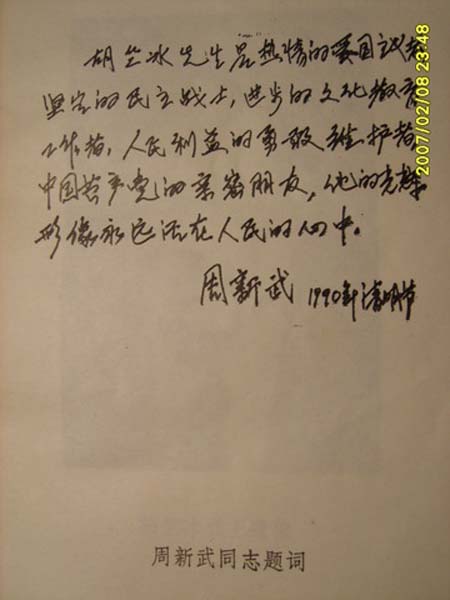 胡竺冰先生是热情的爱国主义者
坚定的民主战士，进步的文化教育
工作者，人民利益的勇敢维护者
中国共产党的亲密朋友，他的光辉
形像永远活在人民的心中。
周新武 1990年清明节
周新武同志题词
2007/02/08 23:48